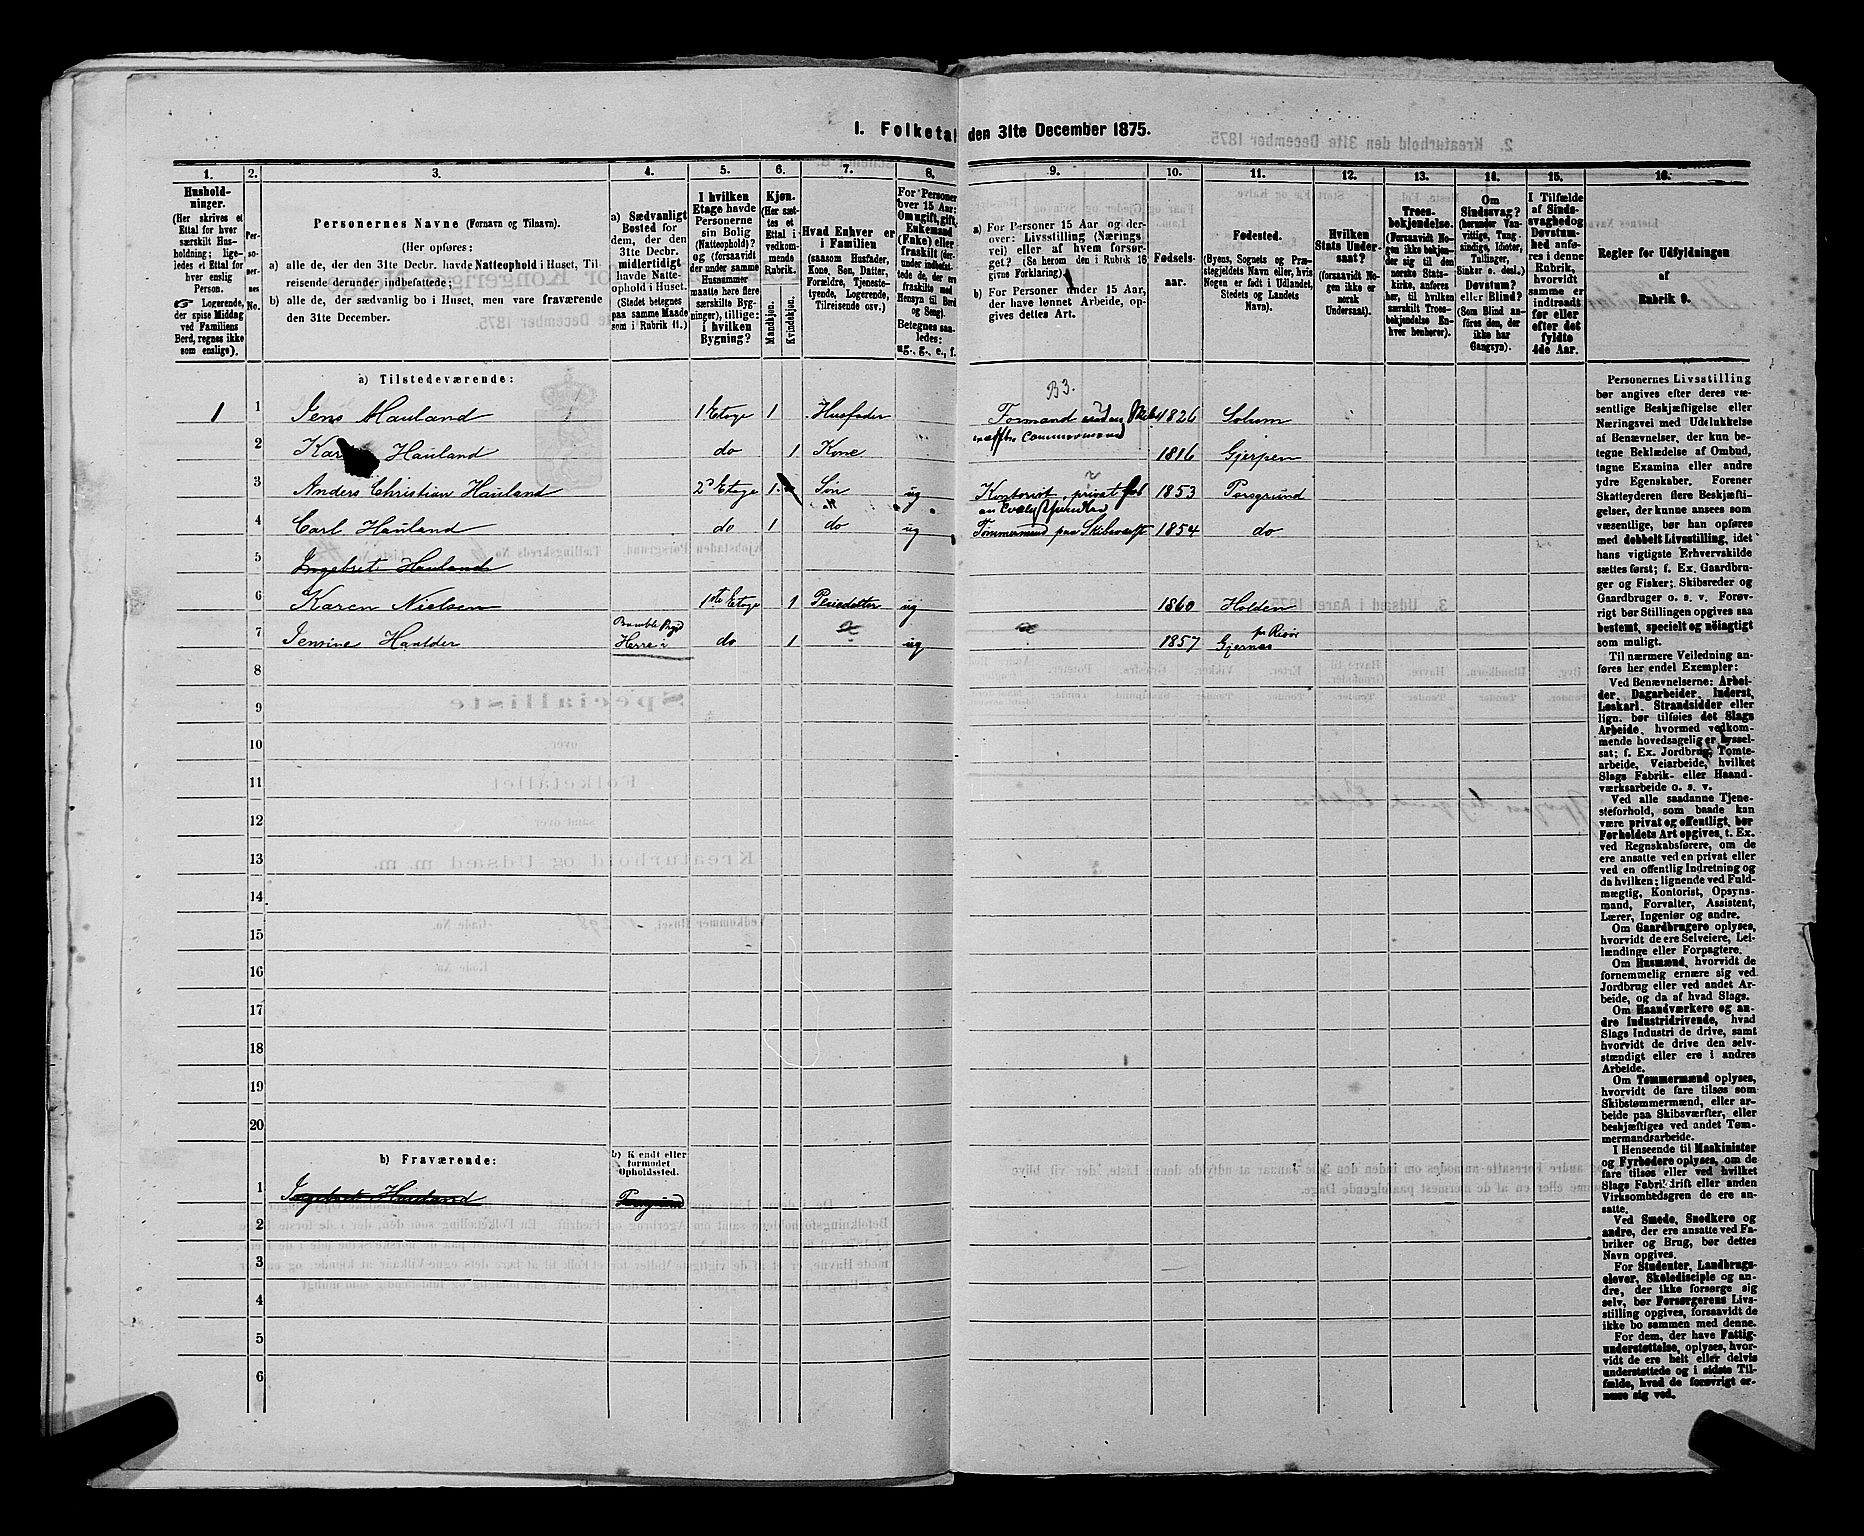 1. Folketal den 31te December 1875.
1. 2. 3. 4. 5. 6. 7. 8. 9. 10. 11. 12. 13. 14. 15. 16.
Hushold-
ninger.
(Her skrives et
Ettal for hver
særskilt Hus-
holdning; lige-
ledes et Ettal for
hver enslig
Person.
☞ Logerende,
der spise Middag
ved Familiens
Berd, regnes ikke
som enslige).
Per-
so-
ner-
nes
No.
Personernes Navne (Fornavn og Tilnavn).
(Her opføres:
a) alle de, der den 31te Decbr. havde Natteophold i Huset, Til-
reisende derunder indbefattede;
b) alle de, der sædvanlig bo i Huset, men vare fraværende
den 31te December.
a) Sædvanligt
Bosted for
dem, der den
31te Decbr.
midlertidigt
havde Natte-
ophold i Huset.
(Stedet betegnes
paa samme Maade
som i Rubrik 11.)
I hvilken
Etage havde
Personerne
sin Bolig
(Natteophold)?
og (forsaavidt
der under samme
Husnummer
maatte høre flere
særskilte Byg-
ninger), tillige:
i hvilken
Bygning?
Kjøn.
(Her sæt-
tes et
Ettal i
vedkom-
mende
Rubrik.
Mandkjøn.
Kvindekjøn.
Hvad Enhver er
i Familien
(saasom Husfader,
Kone, Søn, Datter,
Forældre, Tjeneste-
tyende, Logerende,
Tilreisende osv.)
For Personer
over 15 Aar:
Om ugift, gift,
Enkemand
(Enke) eller
fraskilt
Betegnes saa-
ledes:
ug., g., e., f.
a) For Personer 15 Aar og der-
over: Livsstilling (Nærings
vei) eller af hvem forsør-
get? (Se herom den i Rubrik 16
givne Forklaring.)
b) For Personer under 15 Aar,
der have lønnet Arbeide, op-
gives dettes Art.
Fødsels-
aar.
Fødested.
(Byens, Sognets og Præ-
stegjeldets Navn eller, hvis
Nogen er født i Udlandet,
Stedets og Landets
Navn).
Hvilken
Stats Under-
saat?
(forsaavidt No-
gen ikke er
norsk
Undersaat).
Troes-
bekjendelse.
(Forsaavidt No-
gen ikke bekjen-
der sig til den
norske Stats-
kirke, anføres
her, til hvilken
særskilt Troes-
bekjendelse En-
hver henhører).
Om
Sindssvag?
(herunder Van-
vittige, Tung-
sindige, Idioter,
Tullinger,
Sinker o. desl.)
Døvstum?
eller Blind?
(Som Blind an-
føres den, der
ikke har
Gangsyn).
I Tilfælde
af Sinds-
svaghed og
Døvstum-
hed anfø-
res i denne
Rubrik,
hvorvidt
samme er
indtraadt
før eller
efter det
fyldte
4de Aar.
Regler for Udfyldningen
af
Rubrik 9.
a) Tilstedeværende:
B3.
1 1 Jens Hauland 1 Etage 1 Husfader Formand 1826 Solum
2 Hauland do 1 Kone 1816 Gjerpen
3 Anders Christian Hauland 2d Etage 1 Søn ug Kontorist, privat 1853 Porsgrund
4 Carl Hauland do 1 do ug Tømmermand paa Skibsværft 1854 do
5 Ingebret Hauland
6 Karen Nielsen 1ste Etage 1 Pleiedatter ug 1860 Holden
7 Jensine Haulder Bamble Prgd Herre i do 1 ug 1857 Gjernes pr Risør
8
9
10
11
12
13
14
15
16
17
18
19
20
b) Fraværende:
b) Kendt eller
formodet
Opholdssted.
1 Ingebret Hauland Porsgrund
2
3
4
5
6
Personernes Livsstilling
bør angives efter deres væ-
sentlige Beskjæftigelse eller
Næringsvei med Udelukkelse
af Benævnelser, der kun be-
tegne Beklædelse af Ombud,
tagne Examina eller andre
ydre Egenskaber. Forener
Skatteyderen flere Beskjæfti-
gelser, der kunne ansees som
væsentlige, bør han opføres
med dobbelt Livsstilling, idet
hans vigtigste Erhvervskilde
sættes først; f. Ex. Gaardbru-
ger og Fisker; Skibsreder og
Gaardbruger o. s. v. Forøv-
rigt bør Stillingen opgives saa
bestemt, specielt og nöiagtigt
som muligt.
Til nærmere Veiledning an-
føres her endel Exempler:
Ved Benævnelserne: Arbei-
der, Dagarbeider, Inderst,
Løskarl, Strandsidder eller
lign. bør tilføies det Slags
Arbeide, hvormed vedkom-
mende hovedsagelig er syssel-
sat; f. Ex. Jordbrug, Tomte-
arbeide, Veiarbeide, hvilket
Slags Fabrik- eller Haand-
værksarbeide o. s. v.
Ved alle saadanne Tjene-
steforhold, som baade kan
være privat og offentligt, bør
Forholdets Art opgives, t. Ex.
ved Regnskabsførere, om de
ere ansatte ved en privat eller
ved en offentlig Indretning og
da hvilken; lignende ved Fuld-
mægtig, Kontorist, Opsyns-
mand, Forvalter, Assistent,
Lærer, Ingeniør og andre.
Om Gaardbrugere oplyses,
hvorvidt de ere Selveiere, Lei-
lændinge eller Forpagtere.
Om Husmænd, hvorvidt de
fornemmelig ernære sig ved
Jordbrug eller ved andet Ar-
beide, og da af hvad Slags.
Om Haandværkere og an-
dre Industridrivende, hvad
Slags Industri de drive, samt
hvorvidt de drive den selv-
stændigt eller ere i andres
Arbeide.
Om Tømmermænd oplyses,
hvorvidt de fare tilsøs som
Skibstømmermænd, eller ar-
beide paa Skibsværfter, eller
beskjæftiges ved andet Tøm-
mermandsarbeide.
I Henseende til Maskinister
og Fyrbødere oplyses, om de
fare tilsøs eller ved hvilket
Slags Fabrikdrift eller anden
Virksomhedsgren de ere an-
satte.
Ved Smede, Snedkere og
andre, der ere ansatte ved Fa-
briker og Brug, bør dettes
Navn opgives.
For Studenter, Landbrugs-
elever, Skoledisciple og an-
dre, der ikke forsørge sig
selv, bør Forsørgerens Livs-
stilling opgives, forsaavidt de
ikke bo sammen med denne.
For dem, der have Fattig-
understøttelse, oplyses, hvor-
vidt de ere helt eller delvis
understøttede og i sidste Til-
fælde, hvad de forøvrigt er-
nære sig ved.